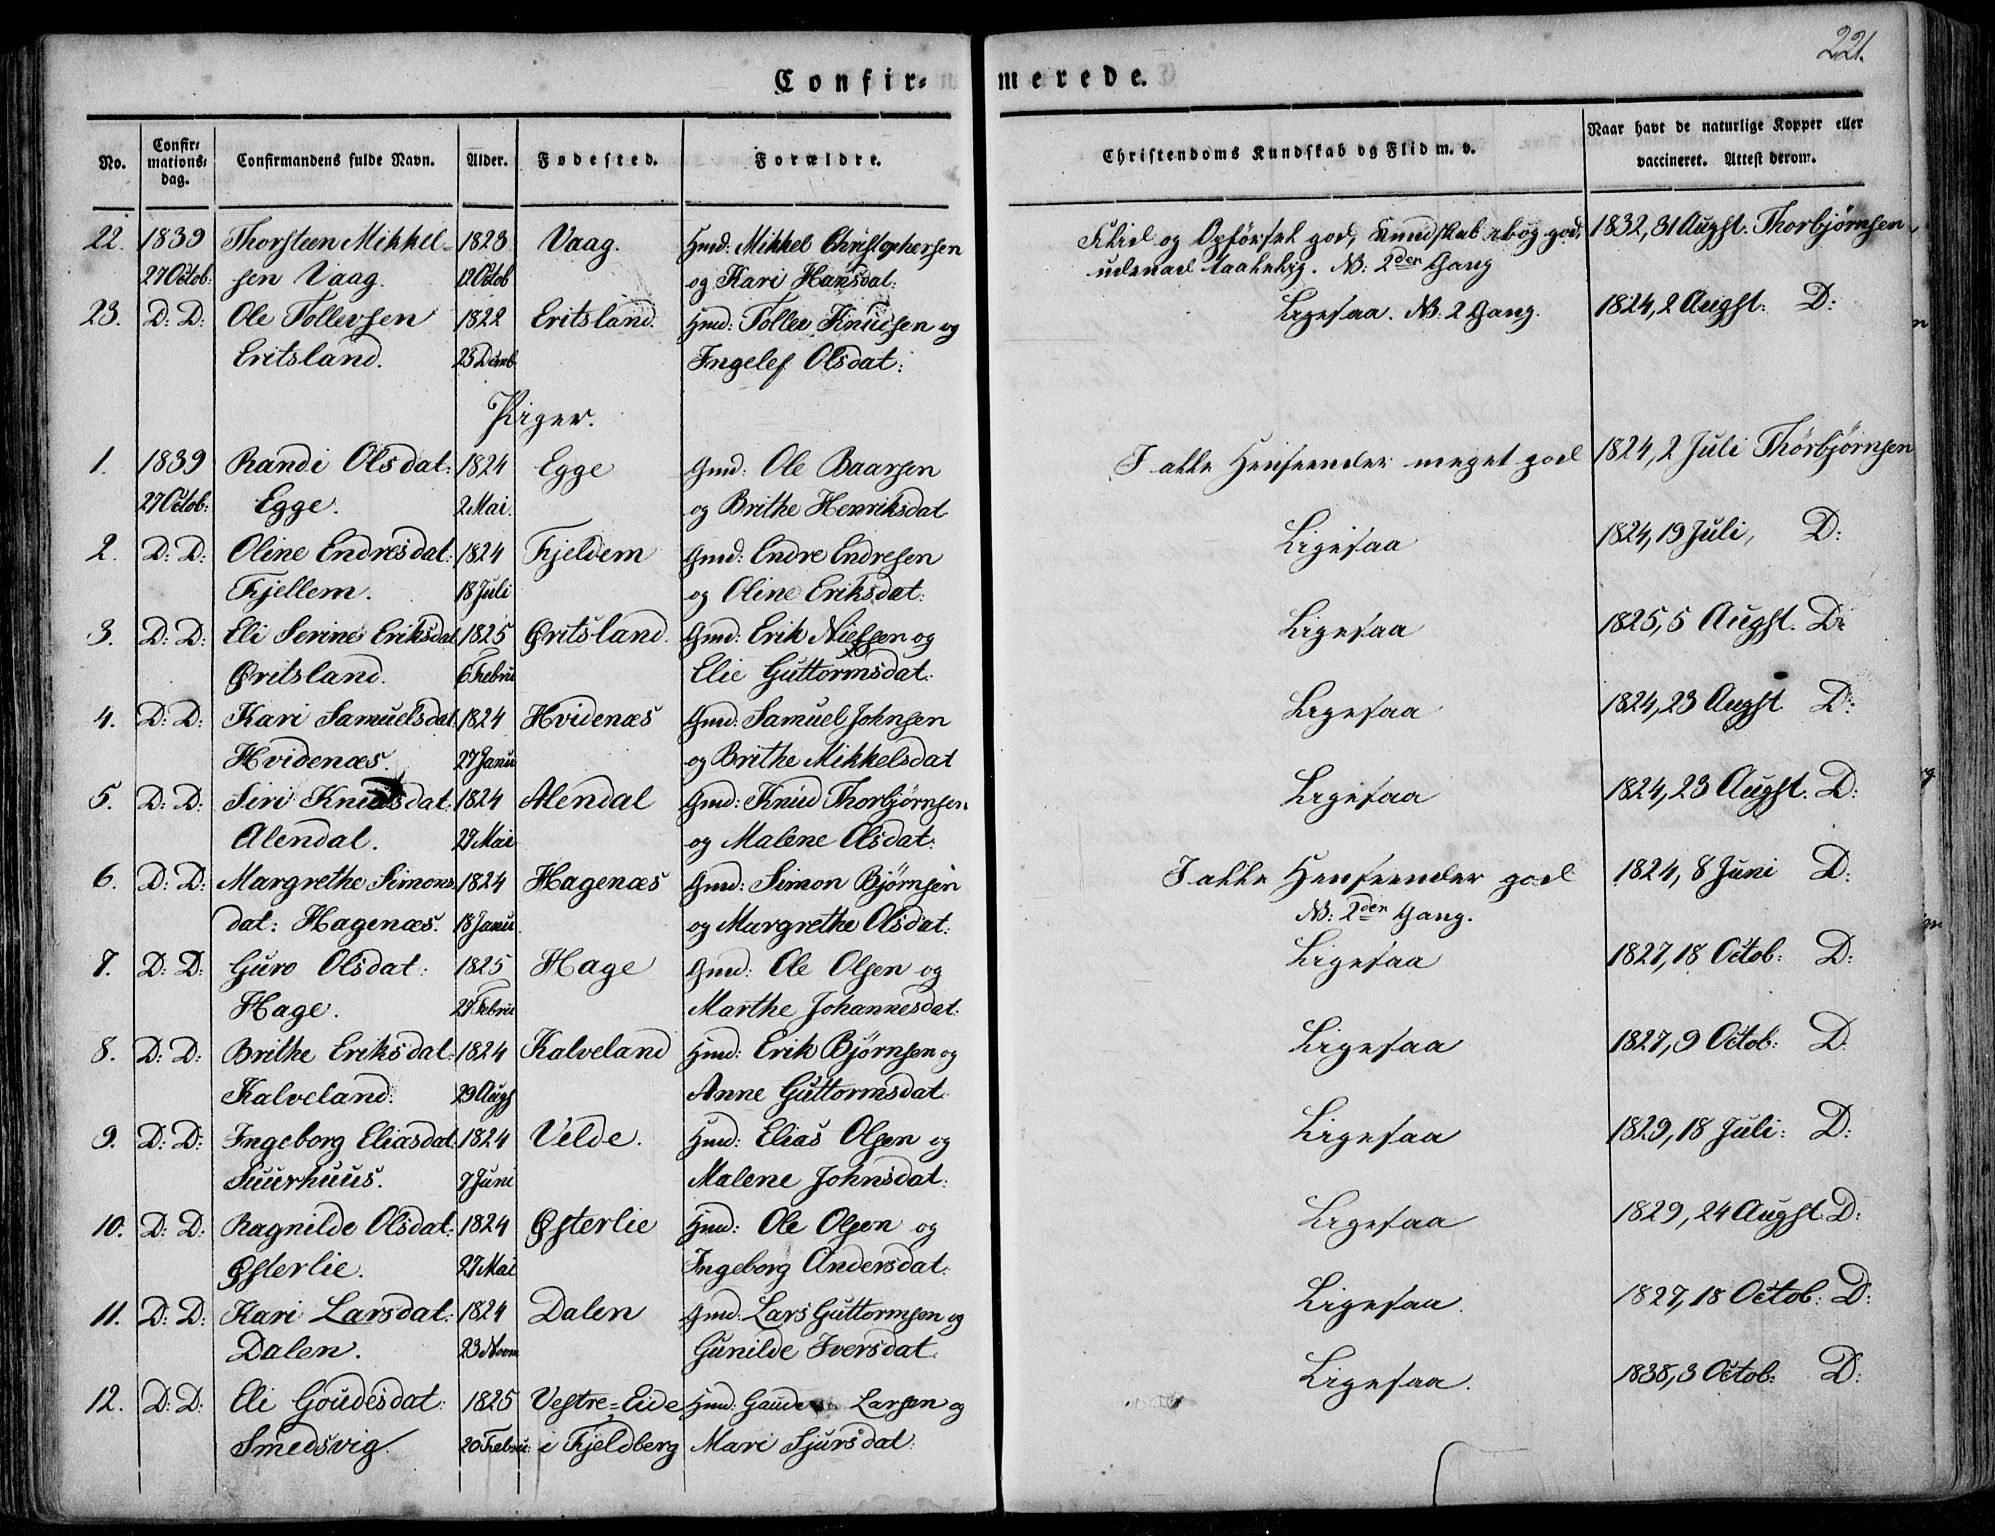 221.
Confir= merede.
No. Confir= mations= dag. Confirmandens fulde Navn. Alder. Fødested. Forældre. Christendoms Kundskab og Flid m. v. Naar havt de naturlige Kopper eller vaccineret. Attest derom.
22. 1839 Thorsteen Mikkel= 1823 Vaag. Gmd: Mikkel Christophersen Flid og Opførsel god, Kundskab og god, 1832, 31 Augst. Thorbjørnsen
27 Octob: sen Vaag. 12 Octob og Kari Hansdat: udenad N: 2den Gang
23. D: D: Ole Tollevsen 1822 Eritsland. Gmd: Tollev Knudsen og Ligesaa. N: 2 Gang. 1824, 2 Augst: D:
Eritsland. 25 Decmb Ingelef Olsdat:
Piger.
1. 1839 Randi Olsdat: 1824 Egge Gmd: Ole Baarsen I alle Henseender meget god 1824, 2 Juli Thorbjørnsen
27 Octob: Egge. 2 Mai. og Brithe Henriksdat
2. D: D: Oline Endresdat: 1824 Fjeldem Gmd: Endre Endresen Ligesaa 1824, 19 Juli, D:
Fjellem. 18 Juli og Oline Eriksdat:
3. D: D: Eli Serine Eriksdat 1825 Øritsland. Gmd: Erik Nielsen og Ligesaa 1825, 5 Augst. D:
Øritsland. 6 Febru Elie Guttormsdat:
4. D: D: Kari Samuelsdat. 1824 Hvidenæs Gmd: Samuel Johnsen Ligesaa 1824, 23 Augst D:
Hvidenæs. 27 Janu og Brithe Mikkelsdat
5. D: D: Siri Knudsdat: 1824 Alendal Gmd: Knud Thorbjørnsen Ligesaa 1824, 23 Augst. D:
Alendal. 27 Mai og Malene Olsdat:
6. D: D: Margrethe Simons 1824 Hagenæs Gmd: Simon Bjørnsen I alle Henseender god 1824, 8 Juni D:
dat: Hagenæs. 18 Janu. og Margrethe Olsdat: N: 2den Gang.
7. D: D: Guro Olsdat: 1825 Hage Gmd: Ole Olsen og Ligesaa 1827, 18 Octob: D:
Hage. 27 Febru Marthe Johannesdat:
8. D: D: Brithe Eriksdat: 1824 Kalveland Hmd: Erik Bjørnsen og Ligesaa 1827, 9 Octob: D:
Kalveland. 29 Augs Anne Guttormsdat.
9. D: D: Ingeborg Eliasdat 1824 Velde. Hmd: Elias Olsen og Ligesaa 1829, 18 Juli: D:
Suurhuus. 7 Juni Malene Johnsdat:
10. D: D: Ragnilde Olsdat: 1824 Østerlie Hmd: Ole Olsen og Ligesaa 1829, 24 Augst. D:
Østerlie. 27 Mai Ingeborg Andersdat:
11. D: D: Kari Larsdat: 1824 Dalen Gmd: Lars Guttormsen og Ligesaa. 1827, 18 Octob: D:
Dalen. 23 Novm Gunilde Iversdat.
12. D: D: Eli Goudesdat: 1825 Vestre=Eide Hmd: Gaude Larsen og Ligesaa. 1838, 3 Octob: D:
Smedsvig. 20 Febru: i Fjeldberg Mari Sjursdat: